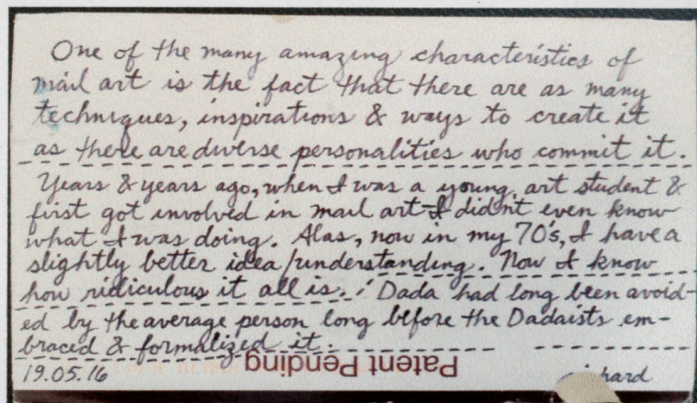 One of the many amazing characteristics of
mail art is the fact that there are as many
techniques, inspirations & ways to create it
as there are diverse personalities who commit it.
Years & years ago, when I was a young art student &
first got involved in mail art I didn't even know
what I was doing. Alas, now in my 70's, I have a
slightly better idea/understanding. Now I know
how ridiculous it all is. Dada had long been avoid-
ed by the average person long before the Dadaists em-
braced & formalized it.
Patent Pending
19.05.16